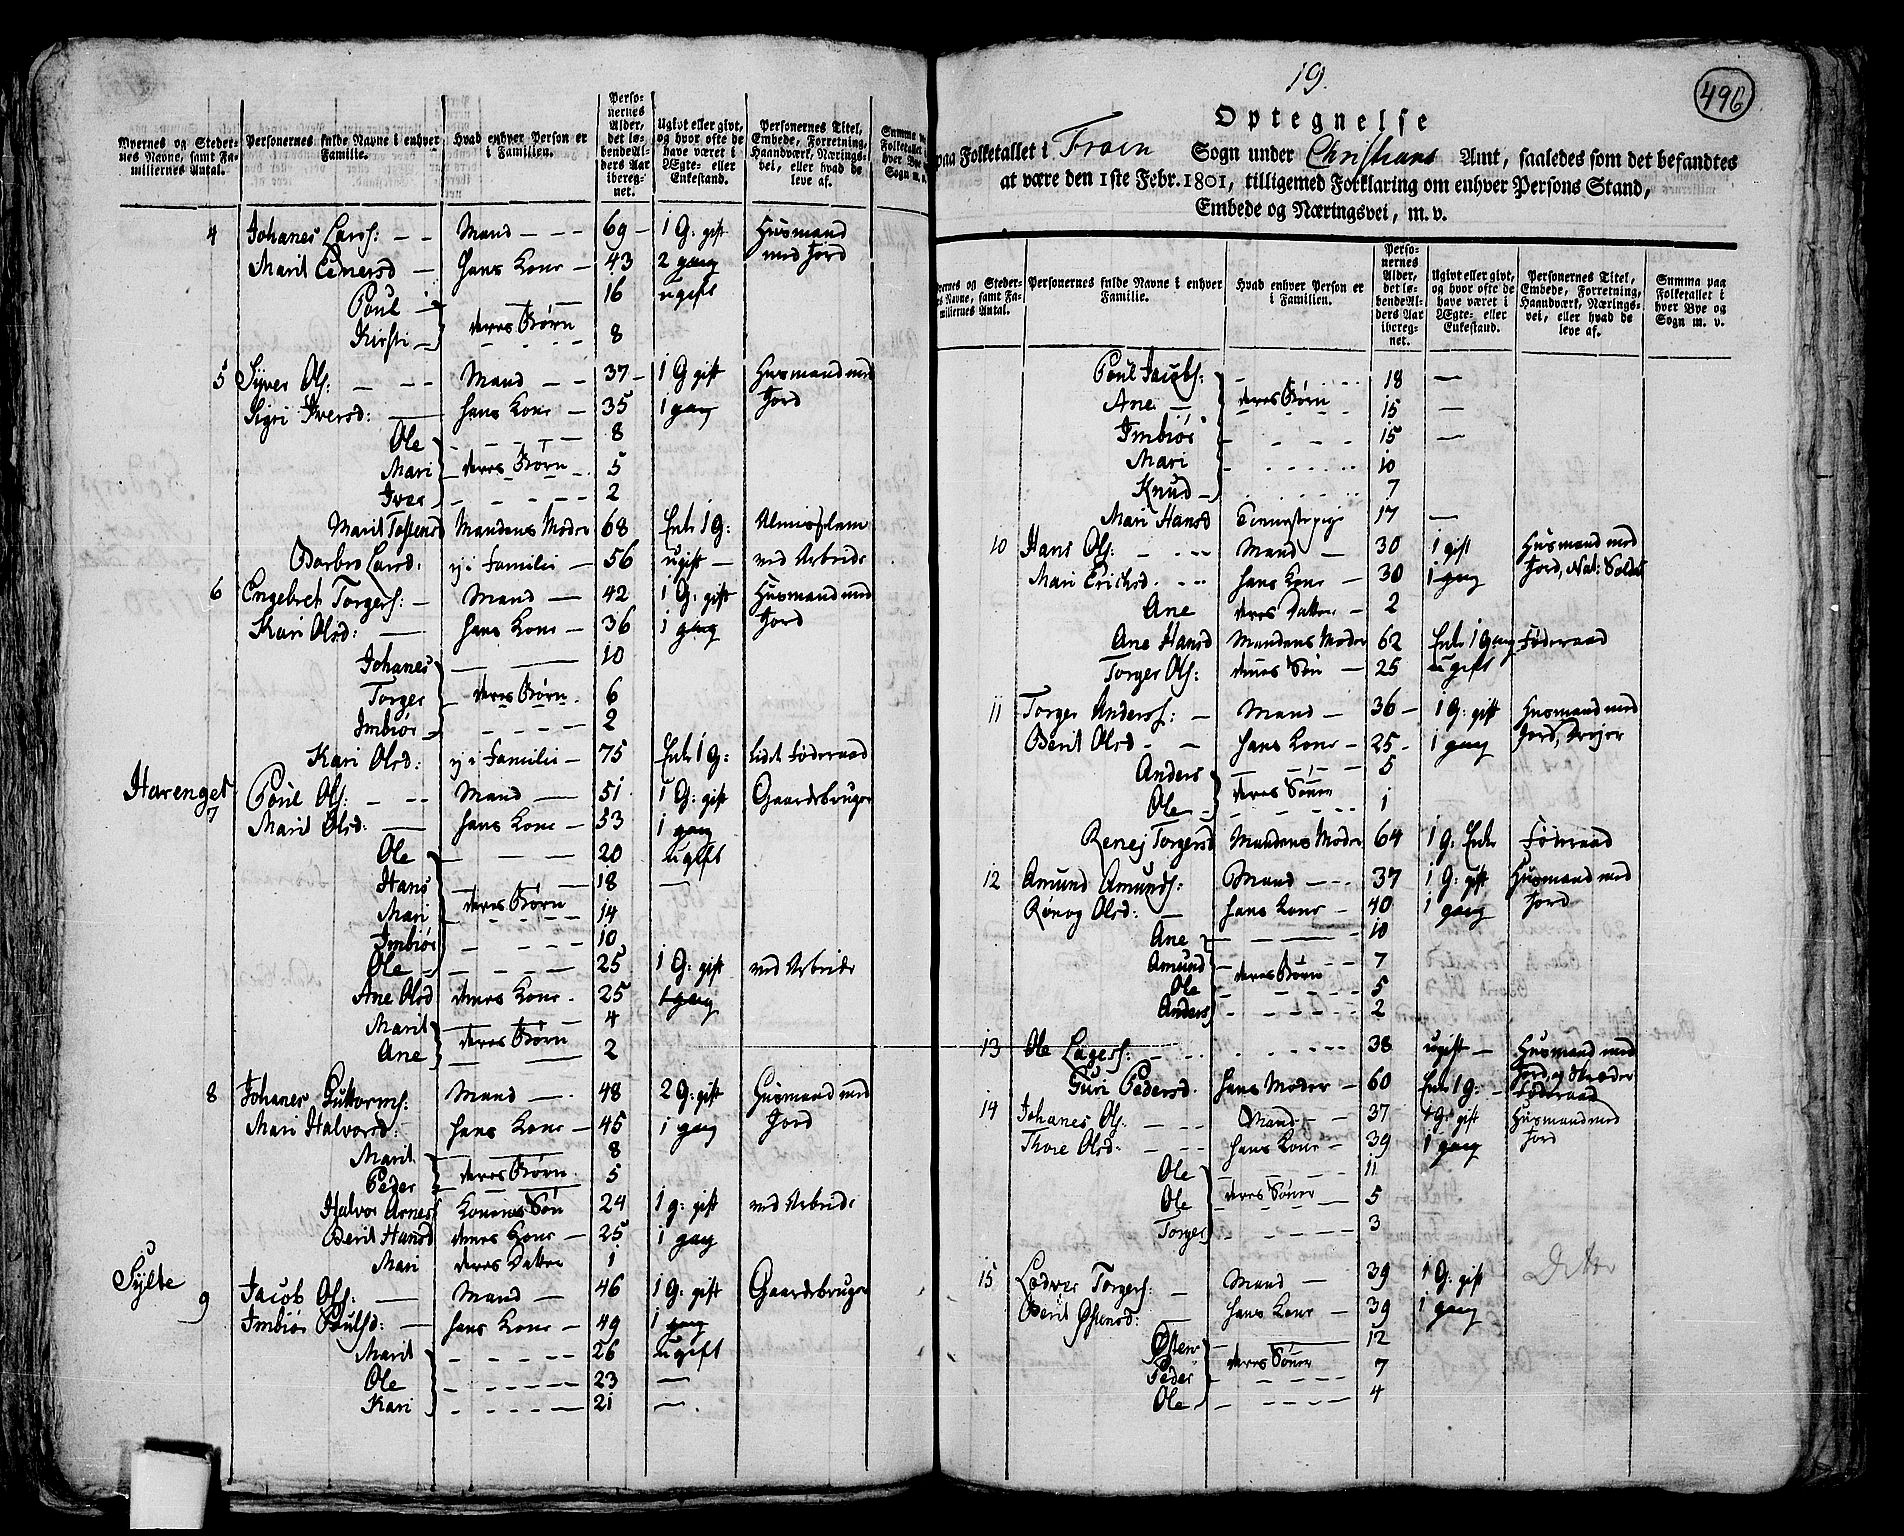 Byernes og Stedernes Navne, samt Familiernes Antal.
Personernes fulde Navne i enhver Familie.
Hvad enhver Person er i Familien.
Personernes Alder, det løbende Alders Aar iberegnet.
Ugivt eller givt, og hvor ofte de have været i Ægte- eller Enkestand.
Personernes Titel, Embede, Forretning, Haandværk, Næringsvei, eller hvad de leve af.
4 Johanes Larss: Mand 69 1 G: gift Huusmand
Marit Eenersd hans Kone 43 2 gang med Jord
Poul 16 ugift
Kirsti deres Børn 8
5 Syver Ols: Mand 37 1 G gift Huusmand med
Sigri Iversd: hans Kone 35 1 gang Jord
Ole 8
Mari deres Børn 5
Iver 2
Marit Tostensd Mandens Moder 68 Enke 1 G: Almisselem
Barbro Larsd: ej i Familie 56 ugift ved Arbeide
6 Engebret Torgers: Mand 42 1 G: gift Huusmand med
Kari Olsd: hans Kone 36 1 gang Jord
Johanes 10
Torger deres Børn 6
Imbiør 2
Kari Olsd: ej i Familie 75 Enke 1 G: lidt Føderaad
Harenget 7 Poul Ols: Mand 51 1 G: gift Gaardbruger
Marit Olsd: hans Kone 53 1 gang
Ole 20 ugift
Hans 18
Mari deres Børn 14
Imbiør 10
Ole 25 1 G: gift ved Arbeide
Ane Olsd dennes Kone 25 1 gang
Marit 4
Ane deres Børn 2
8 Johanes Guttorms: Mand 48 2 G: gift Huusmand med
Mari Halvorsd: hans Kone 45 1 gang Jord
Marit 8
Peder deres Børn 5
Halvor Arnes Konens Søn 24 1 g: gift ved Arbeide
Berit Hansd dennes Kone 25 1 gang
Mari deres Datter 1
Sylte 9 Jacob Ols: Mand 46 1 G: gift Gaardbruger
Imbiør Poulsd: hans Kone 49 1 gang
Marit 26 ugift
Ole 23
Kari 21
19.
496
Optegnelse
paa Folketallet i Froen Sogn under Christians Amt, saaledes som det befandtes
at være den 1ste Febr. 1801, tilligemed Forklaring om enhver Persons Stand,
Embede og Næringsvei, m. v.
Personernes fulde Navne i enhver Familie.
Hvad enhver Person er i Familien.
Personernes Alder, det løbende Alders Aar iberegnet.
Ugivt eller givt, og hvor ofte de have været i Ægte- eller Enkestand.
Personernes Titel, Embede, Forretning, Haandværk, Næringsvei, eller hvad de leve af.
Summa paa Folketallet i hver Bye og Sogn m. v.
Poul Jacobs: 18
Ane deres Børn 15
Imbiør 15
Mari 10
Knud 7
Mari Hansd Tienestepige 17
10 Hans Ols: Mand 30 1 gift Huusmand med
Mari Ericksd. hans Kone 30 1 gang Jord, Nat: Soldat
Ane deres Datter 2
Ane Hansd Mandens Moder 62 Enke 1 gang Føderaad
Torger Ols: dennes Søn 25 ugift
11 Torger Anderss: Mand 36 1 G: gift Huusmand med
Berit Olsd hans Kone 25 1 gang Jord,
Anders 5
Ole deres Sønner 1
Renej Torgersd Mandens Moder 64 1 g: Enke Føderaad
12 Amund Amunds: Mand 37 1 G: gift Huusmand med
Rønog Olsd: hans Kone 40 1 gang Jord
Ane 10
Amund deres Børn 7
Ole 5
Anders 2
13 Ole 38 ugift Huusmand med
Jord og Skræder
Guri Pedersd. hans Moder 60 Enke 1 G: Føderaad
14 Johanes Ols: Mand 37 1 G: gift Huusmand med
Thore Olsd: hans Kone 39 1 gang Jord
Ole 11
Ole deres Sønner 5
Torger 3
15 Lodver Torgers: Mand 39 1 G: gift Ditto
Berit Østensd: hans Kone 39 1 gang
Østen 12
Peder deres Sønner 7
Ole 4